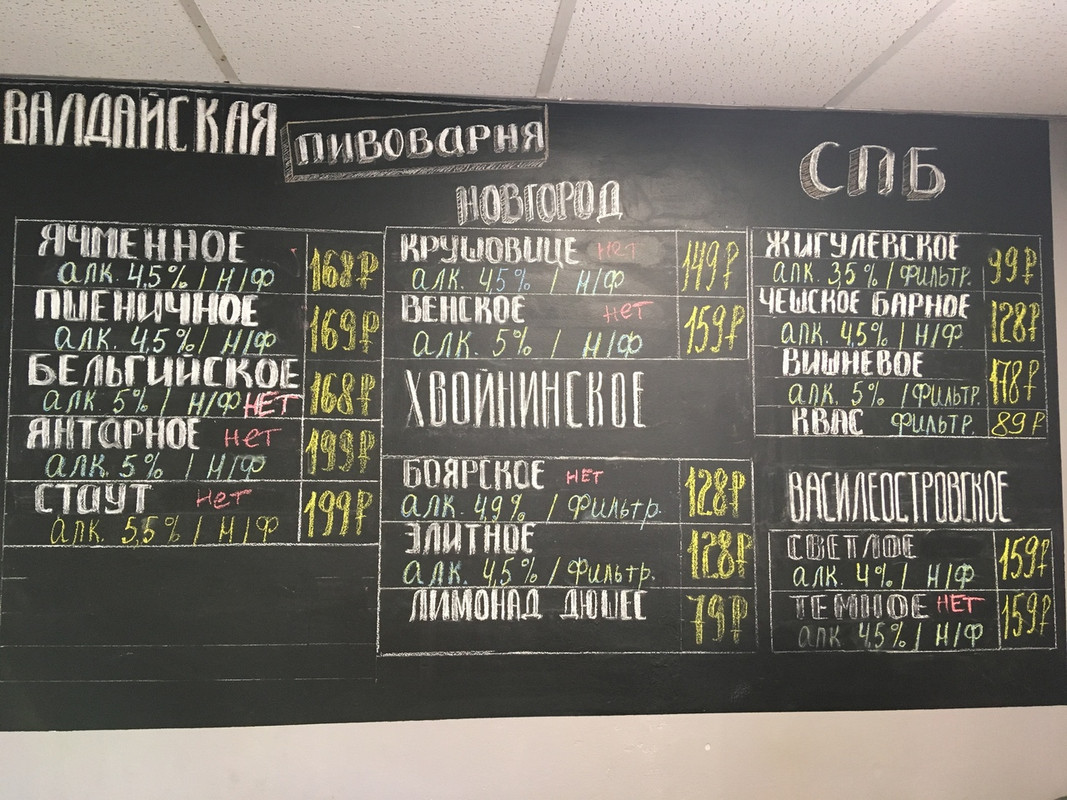 ВАЛДАЙСКАЯ
ПИВОВАРНЯ
ЯЧМЕННОЕ 168₽
АЛК. 4,5% / Н/Ф
ПШЕНИЧНОЕ 169₽
АЛК. 4,5% / Н/Ф
БЕЛЬГИЙСКОЕ 168₽
АЛК. 5% / Н/Ф НЕТ
ЯНТАРНОЕ НЕТ 199₽
АЛК. 5% / Н/Ф
СТАУТ НЕТ 199₽
АЛК. 5,5% / Н/Ф
НОВГОРОД
КРУШОВИЦЕ НЕТ 149₽
АЛК. 4,5% / Н/Ф
ВЕНСКОЕ НЕТ 159₽
АЛК. 5% / Н/Ф
ХВОЙНИНСКОЕ
БОЯРСКОЕ НЕТ 128₽
АЛК. 4,9% / Фильтр.
ЭЛИТНОЕ 128₽
АЛК. 4,5% / Фильтр.
ЛИМОНАД ДЮШЕС 79₽
СПБ
ЖИГУЛЕВСКОЕ 99₽
АЛК. 3,5% / Фильтр.
ЧЕШСКОЕ БАРНОЕ 128₽
АЛК. 4,5% / Н/Ф
ВИШНЕВОЕ 178₽
АЛК. 5% / Фильтр.
КВАС Фильтр. 89₽
ВАСИЛЕОСТРОВСКОЕ
СВЕТЛОЕ 159₽
АЛК. 4% / Н/Ф
ТЕМНОЕ НЕТ 159₽
АЛК 4,5% / Н/Ф